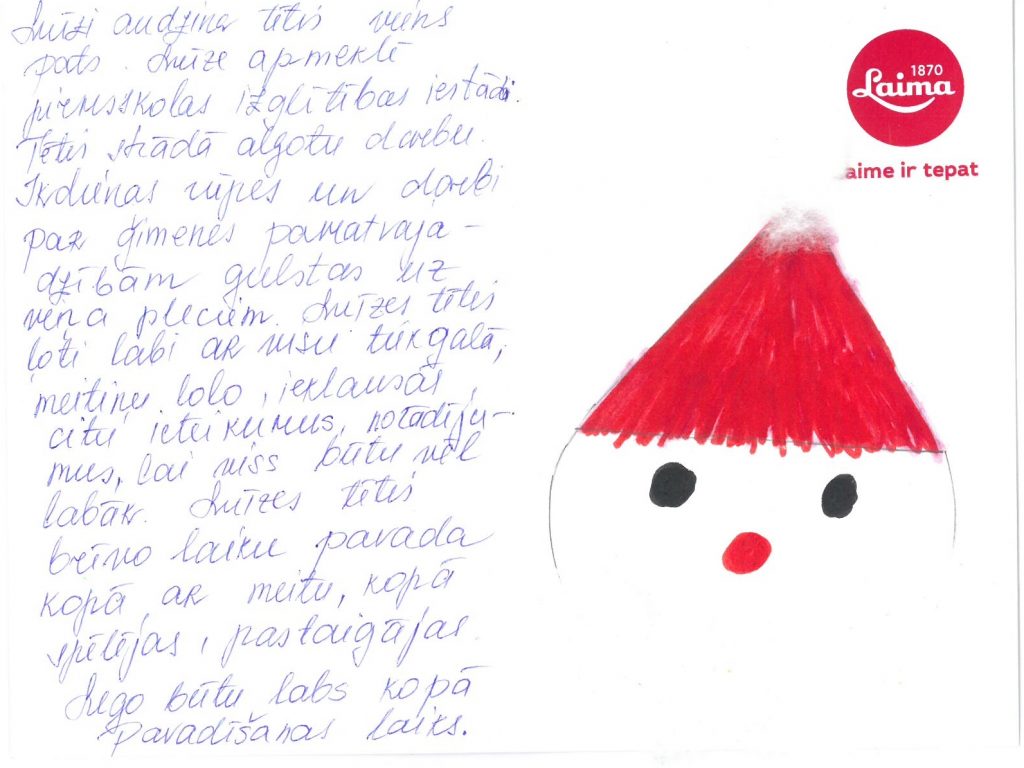 Luīzi audzina tētis viens
pats. Luīze apmeklē
pirmsskolas izglītības iestādi.
Tētis strādā algotu darbu.
Ikdienas rūpes un darbi
par ģimenes pamatvaja-
dzībām gulstas uz
viņa pleciem. Luīzes tētis
ļoti labi ar visu tiek galā,
meitiņu lolo, ieklausās
citu ieteikumus, norādīju-
mus, lai viss būtu vēl
labāk. Luīzes tētis
brīvo laiku pavada
kopā ar meitu, kopā
spēlējas, pastaigājas.
Lego būtu labs kopā
pavadīšanas laiks.
1870
Laima
aime ir tepat